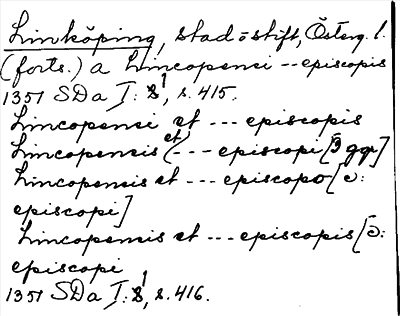 Linköping, stad o stift, Österg. l.
(forts.) a Lincopensi --- episcopis
1351 SDa I:1, s. 415.
Lincopensi et --- episcopis
Lincopensis et --- episcopi [3 ggr]
Lincopensis et --- episcopo [ɔ:
episcopi]
Lincopensis et --- episcopis [ɔ:
episcopi
1351 SDa I:1, s. 416.